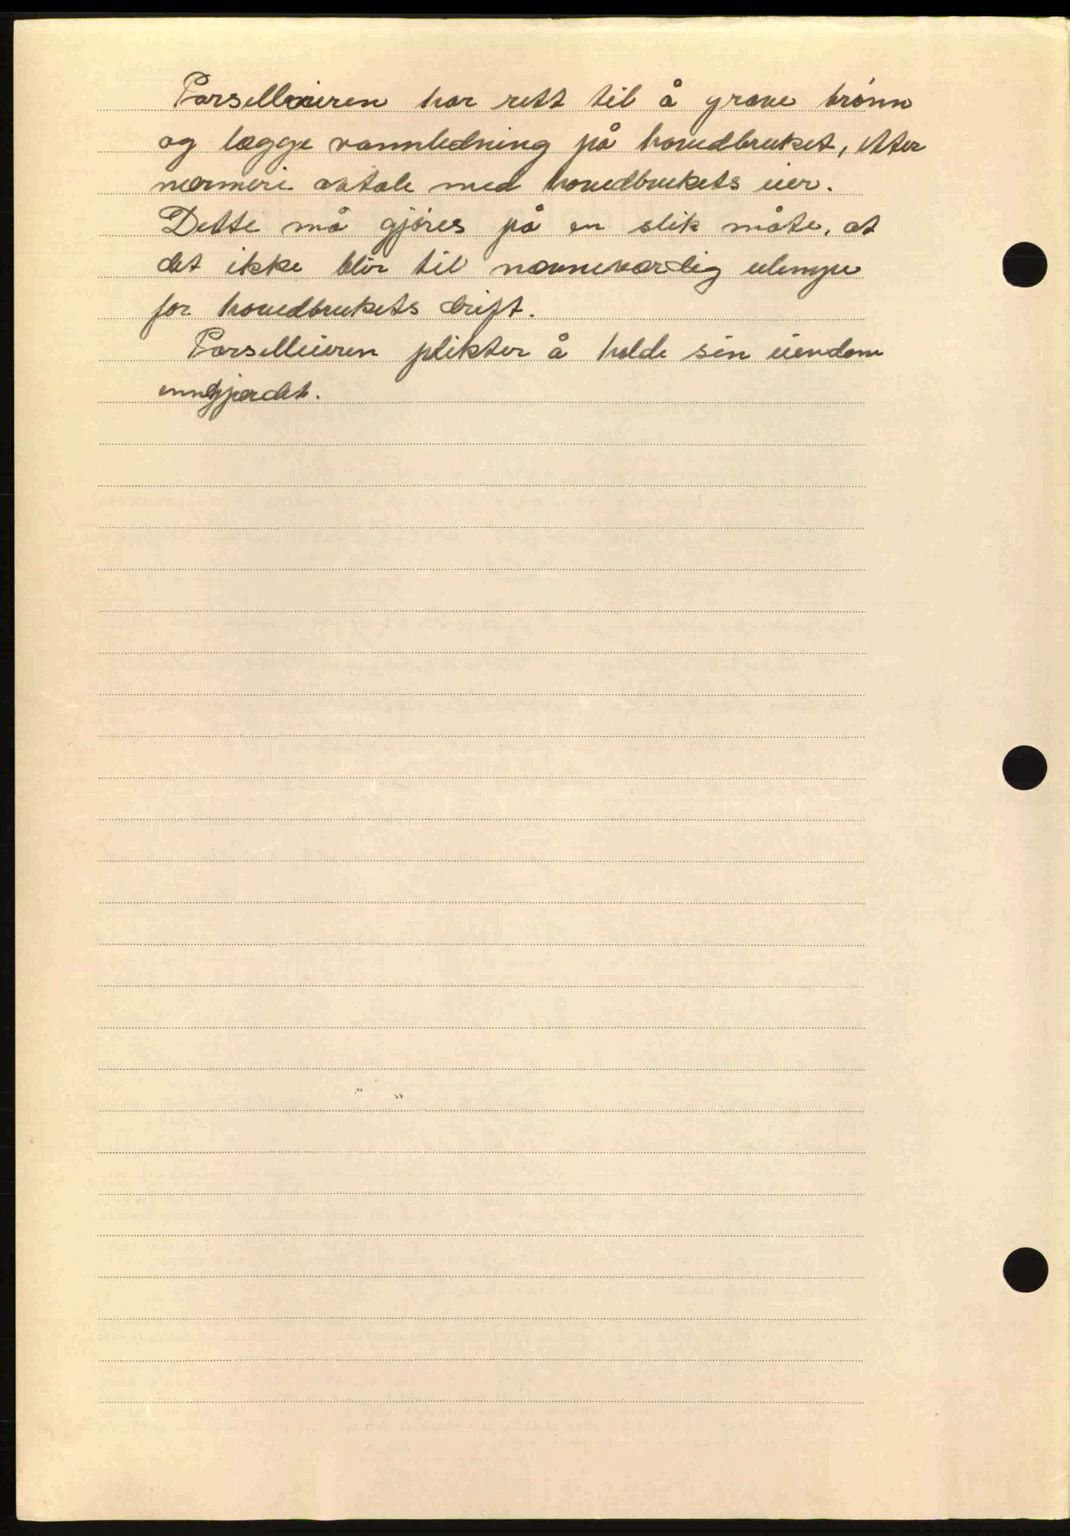 Parselleieren har rett til å grave brønn
og lægge vannledning på hovedbruket, etter
nærmere avtale med hovedbrukets eier.
Dette må gjøres på en slik måte, at
det ikke blir til nævneværdig ulempe
for hovedbrukets drift.
Parselleieren plikter å holde sin eiendom
inngjerdet.